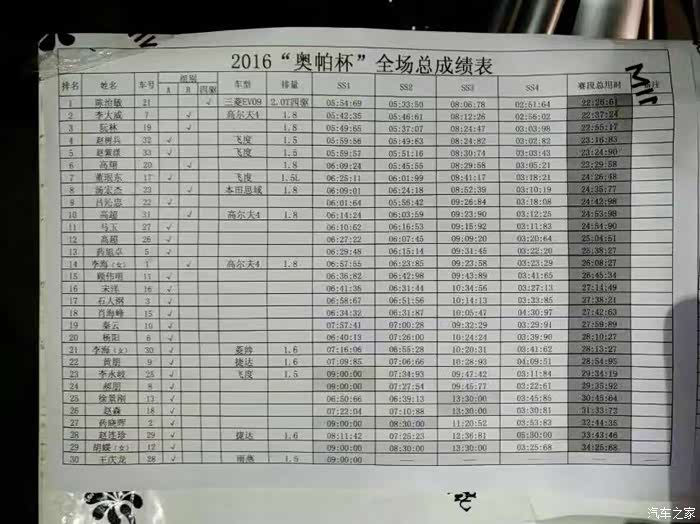 2016“奥帕杯”全场总成绩表
排名 姓名 车号 组别 车型 排量 SS1 SS2 SS3 SS4 赛段总用时 备注
A B 四驱
1 陈治敏 21 √ 三菱EVO9 2.0T四驱 05:54:69 05:33:50 08:06:78 02:51:64 22:26:61
2 李大威 7 √ 高尔夫4 1.8 05:42:35 05:46:61 08:12:26 02:56:02 22:37:24
3 阮林 19 √ 1.8 05:49:65 05:37:07 08:24:47 03:03:98 22:55:17
4 赵树兵 32 √ 飞度 1.5 05:59:56 05:49:63 08:24:82 03:02:82 23:16:83
5 赵紫漾 33 √ 飞度 1.5 05:59:57 05:51:16 08:30:74 03:03:43 23:24:90
6 高翔 20 √ 1.8 06:09:24 05:55:40 08:29:58 03:05:21 23:29:58
7 董珉东 17 √ 飞度 1.5L 06:25:11 06:01:99 08:41:17 03:18:21 24:26:48
8 汤宏杰 23 √ 本田思域 1.8 06:09:01 06:24:18 08:52:39 03:10:19 24:35:77
9 吕沁忠 22 √ 06:01:64 05:56:42 09:26:84 03:18:08 24:42:98
10 高超 31 √ 高尔夫4 1.8 06:14:24 06:03:59 09:23:90 03:12:25 24:53:98
11 马玉 27 √ 06:10:62 06:16:53 09:15:92 03:11:83 24:54:90
12 高超 26 √ 06:27:22 06:07:45 09:09:20 03:20:64 25:04:51
13 药旭卓 5 √ 06:29:48 06:15:14 09:31:45 03:22:20 25:38:27
14 李海(女) 1 √ 高尔夫4 1.8 06:57:55 06:23:85 09:23:58 03:23:29 26:08:27
15 顾伟明 11 √ 06:36:82 06:42:98 09:43:89 03:41:65 26:45:34
16 宋洋 16 √ 06:41:36 06:31:44 10:34:56 03:27:13 27:14:49
17 石人纲 3 √ 06:58:67 06:51:56 10:14:13 03:33:85 27:38:21
18 肖海峰 15 √ 06:34:32 06:31:87 10:05:47 04:30:97 27:42:63
19 秦云 10 √ 07:57:41 07:00:28 09:32:29 03:29:91 27:59:89
20 杨阳 6 √ 06:40:13 07:26:00 10:24:24 03:39:90 28:10:27
21 李海(女) 30 √ 菱帅 1.6 07:16:06 06:55:28 10:20:31 03:41:62 28:13:27
22 黄朋 9 √ 捷达 1.6 07:09:85 07:06:66 10:28:93 04:09:51 28:54:95
23 李永岐 25 √ 飞度 1.5 09:00:00 07:34:93 09:47:42 03:11:84 29:34:19
24 郝朋 8 √ 09:00:00 07:27:54 09:45:77 03:22:61 29:35:92
25 徐景刚 13 √ 06:50:66 06:39:13 13:30:00 03:45:85 30:45:64
26 赵淼 18 √ 07:22:04 07:10:88 13:30:00 03:30:81 31:33:73
27 药晓晖 2 √ 09:00:00 08:30:00 11:20:52 03:53:83 32:44:35
28 赵连珍 29 √ 捷达 1.6 08:11:42 07:25:23 12:36:81 05:30:00 33:43:46
29 胡蝶(女) 12 √ 09:00:00 08:30:00 13:30:00 03:25:68 34:25:68
30 王庆龙 28 √ 雨燕 1.5 09:00:00 —— —— —— ——
汽车之家